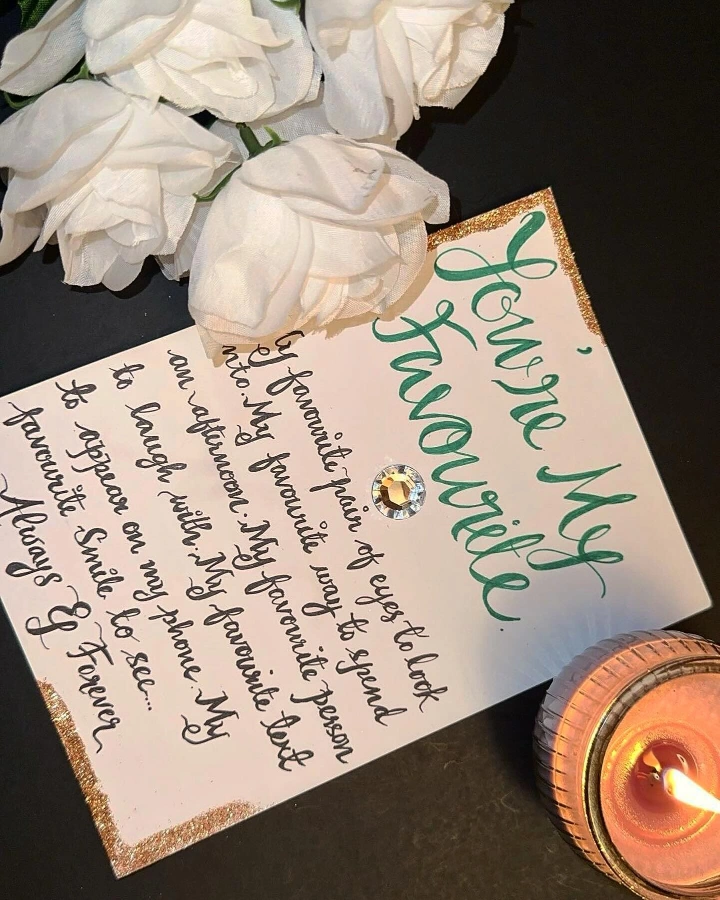 You're My
Favourite.
My favourite pair of eyes to look
into. My favourite way to spend
an afternoon. My favourite person
to laugh with. My favourite text
to appear on my phone. My
favourite Smile to see...
Always & Forever